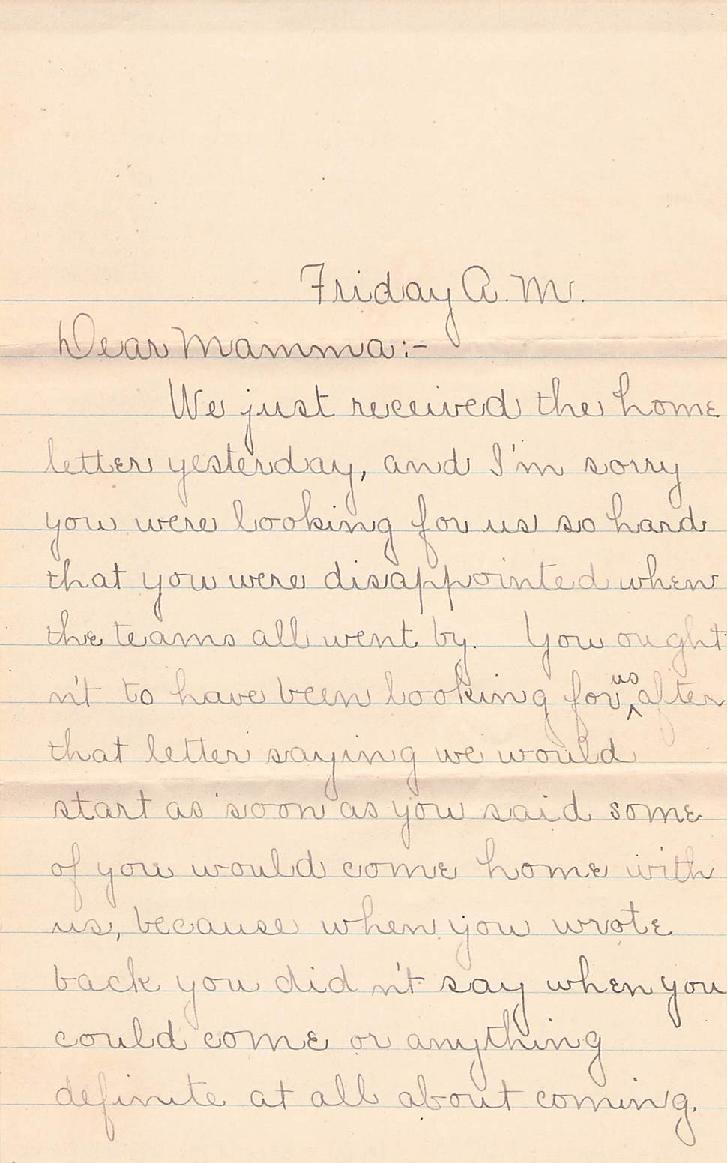 Friday A.M.
Dear Mamma:-
We just received the home
letter yesterday, and I'm sorry
you were looking for us so hard
that you were disappointed when
the teams all went by. You ought
n't to have been looking for us after
that letter saying we would
start as soon as you said some
of you would come home with
us, because when you wrote
back you did n't say when you
could come or anything
definite at all about coming.